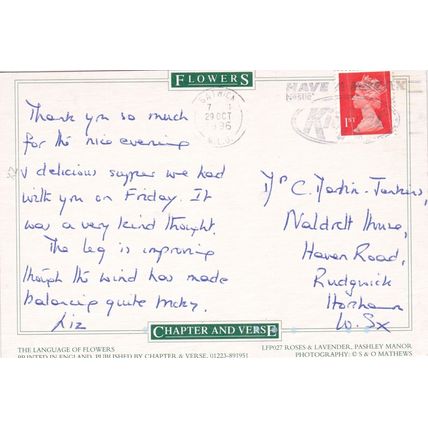 FLOWERS
HAVE A BREAK
29 OCT
1996
1ST
Thank you so much
for the nice evening
& delicious supper we had
with you on Friday. It
was a very kind thought.
The leg is improving
though the wind has made
balancing quite tricky.
Liz
C. Martin-Jenkins,
Naldrett House,
Haven Road,
Rudgwick
Horsham
W. Sx
CHAPTER AND VERSE
THE LANGUAGE OF FLOWERS
PRINTED IN ENGLAND. PUBLISHED BY CHAPTER & VERSE. 01223-891951
LFP027 ROSES & LAVENDER, PASHLEY MANOR
PHOTOGRAPHY: © S & O MATHEWS